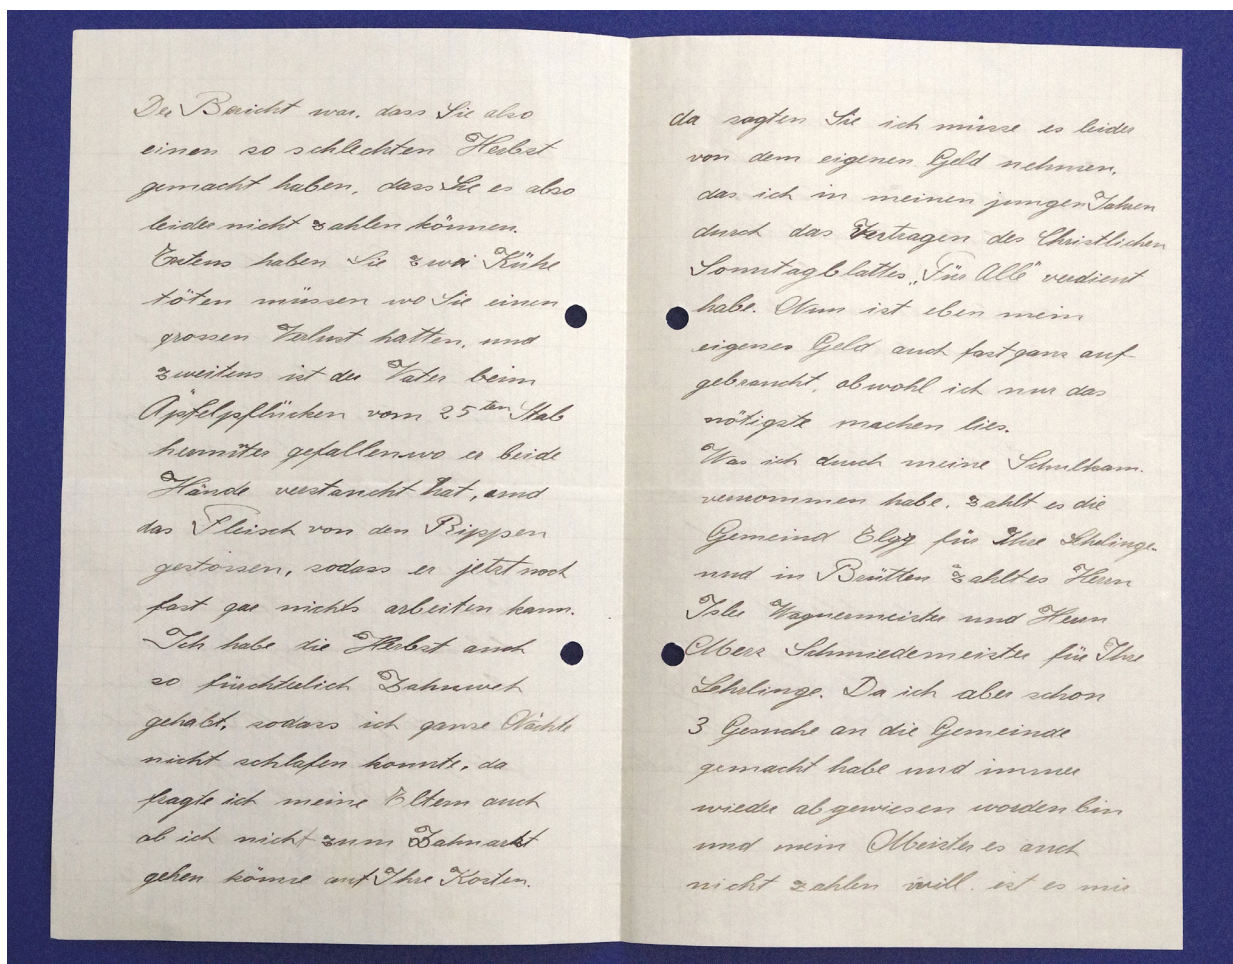 Der Bericht war, dass Sie also
einen so schlechten Herbst
gemacht haben, dass Sie es also
leider nicht zahlen können.
Erstens haben Sie zwei Kühe
töten müssen wo Sie einen
grossen Verlust hatten, und
zweitens ist der Vater beim
Äpfelpflücken vom 25ten Stab
herunter gefallen wo er beide
Hände verstaucht hat, und
das Fleisch von den Rippen
gestossen, sodass er jetzt noch
fast gar nichts arbeiten kann.
Ich habe die Herbst auch
so fürchterlich Zahnweh
gehabt, sodass ich ganze Nächte
nicht schlafen konnte, da
fragte ich meine Eltern auch
ob ich nicht zum Zahnarzt
gehen könne auf Ihre Kosten.
da sagten Sie ich müsse es leider
von dem eigenen Geld nehmen,
das ich in meinen jungen Jahren
durch das Vertragen des Christlichen
Sonntagblattes „Für Alle" verdient
habe. Nun ist eben mein
eigenes Geld auch fast ganz auf-
gebraucht, obwohl ich nur das
nötigste machen lies.
Was ich durch meine Schulkam.
vernommen habe, zahlt es die
Gemeind Elgg für Ihre Lehrlinge.
und in Brütten zahlt es Herrn
Isler Wagnermeister und Herrn
Merz Schmiedemeister für Ihre
Lehrlinge. Da ich aber schon
3 Gesuche an die Gemeinde
gemacht habe und immer
wieder abgewiesen worden bin
und mein Meister es auch
nicht zahlen will, ist es mir